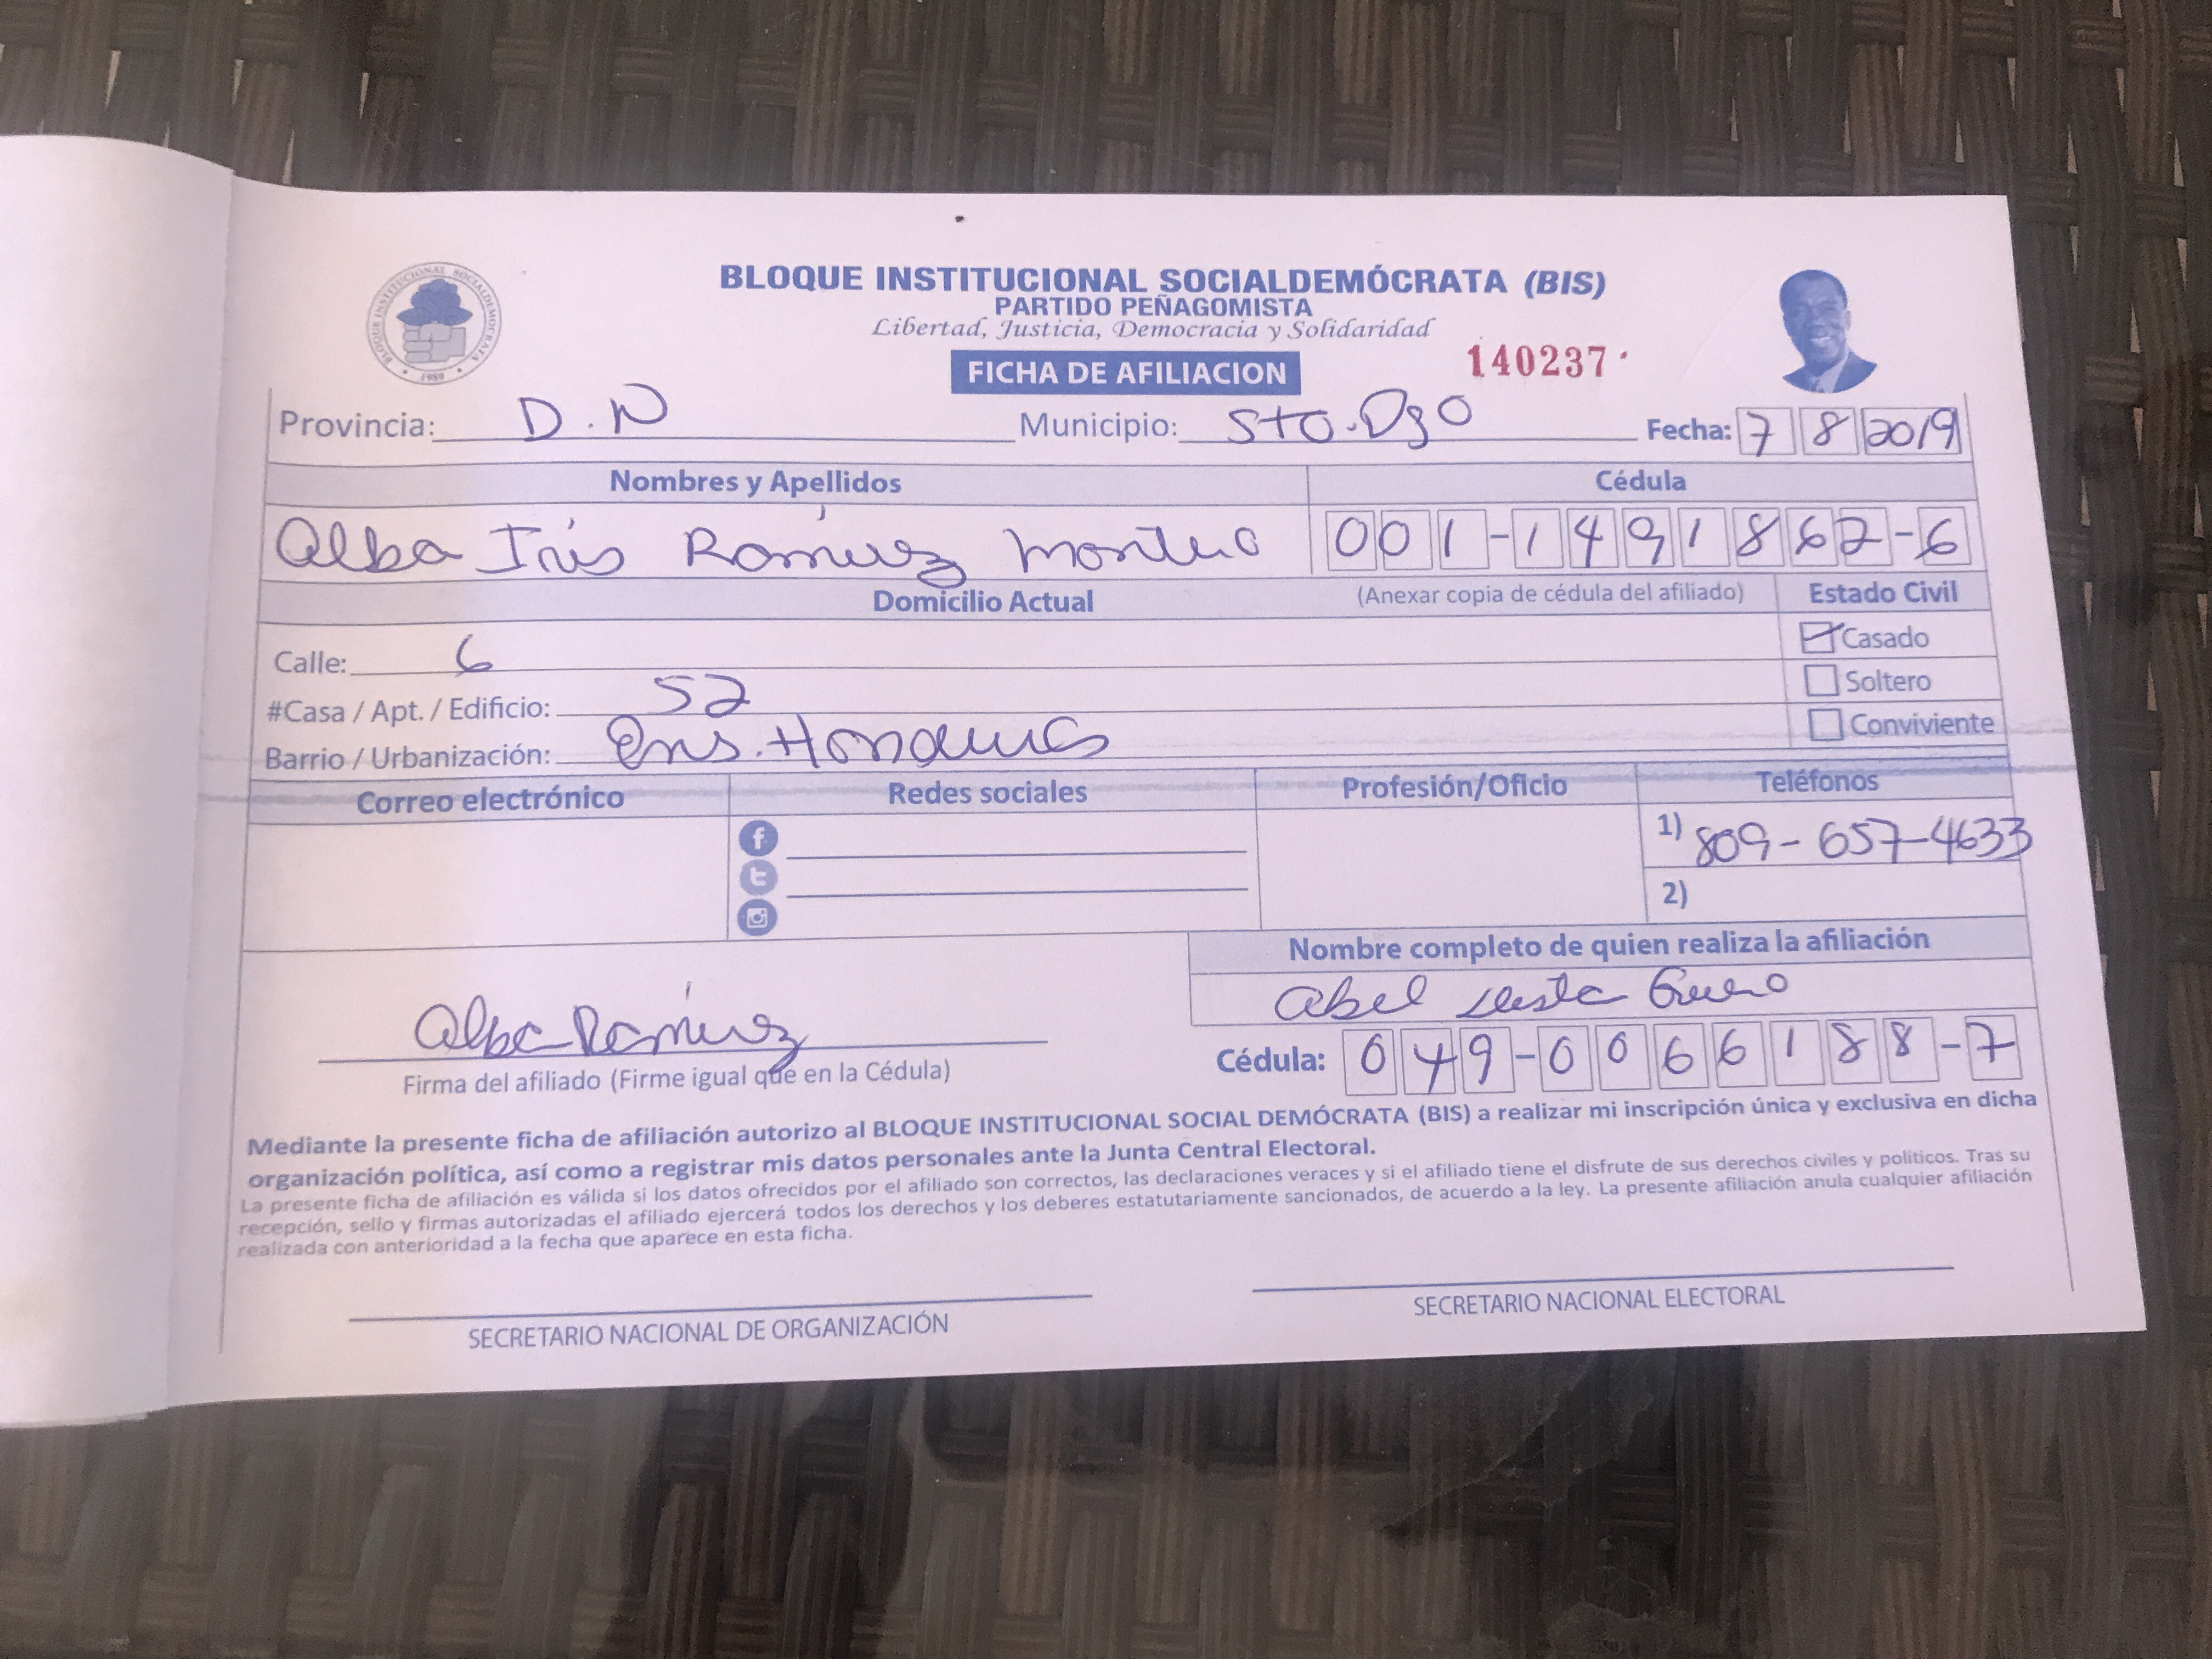 BLOQUE INSTITUCIONAL SOCIALDEMÓCRATA (BIS)
PARTIDO PEÑAGOMISTA
Libertad, Justicia, Democracia y Solidaridad
BLOQUE INSTITUCIONAL SOCIALDEMOCRATA
1989
FICHA DE AFILIACION 140237
Provincia: D.N Municipio: Sto.Dgo Fecha: 7 8 2019
Nombres y Apellidos Cédula
Alba Iris Ramírez Montero 001-1491862-6
Domicilio Actual (Anexar copia de cédula del afiliado) Estado Civil
Calle: 6 Casado
#Casa / Apt. / Edificio: 52 Soltero
Barrio / Urbanización: Ens. Honduras Conviviente
Correo electrónico Redes sociales Profesión/Oficio Teléfonos
1) 809-657-4633
2)
Nombre completo de quien realiza la afiliación
Abel
Alba Ramírez
Firma del afiliado (Firme igual que en la Cédula) Cédula: 049-0066188-7
Mediante la presente ficha de afiliación autorizo al BLOQUE INSTITUCIONAL SOCIAL DEMÓCRATA (BIS) a realizar mi inscripción única y exclusiva en dicha
organización política, así como a registrar mis datos personales ante la Junta Central Electoral.
La presente ficha de afiliación es válida si los datos ofrecidos por el afiliado son correctos, las declaraciones veraces y si el afiliado tiene el disfrute de sus derechos civiles y políticos. Tras su
recepción, sello y firmas autorizadas el afiliado ejercerá todos los derechos y los deberes estatutariamente sancionados, de acuerdo a la ley. La presente afiliación anula cualquier afiliación
realizada con anterioridad a la fecha que aparece en esta ficha.
SECRETARIO NACIONAL DE ORGANIZACIÓN SECRETARIO NACIONAL ELECTORAL